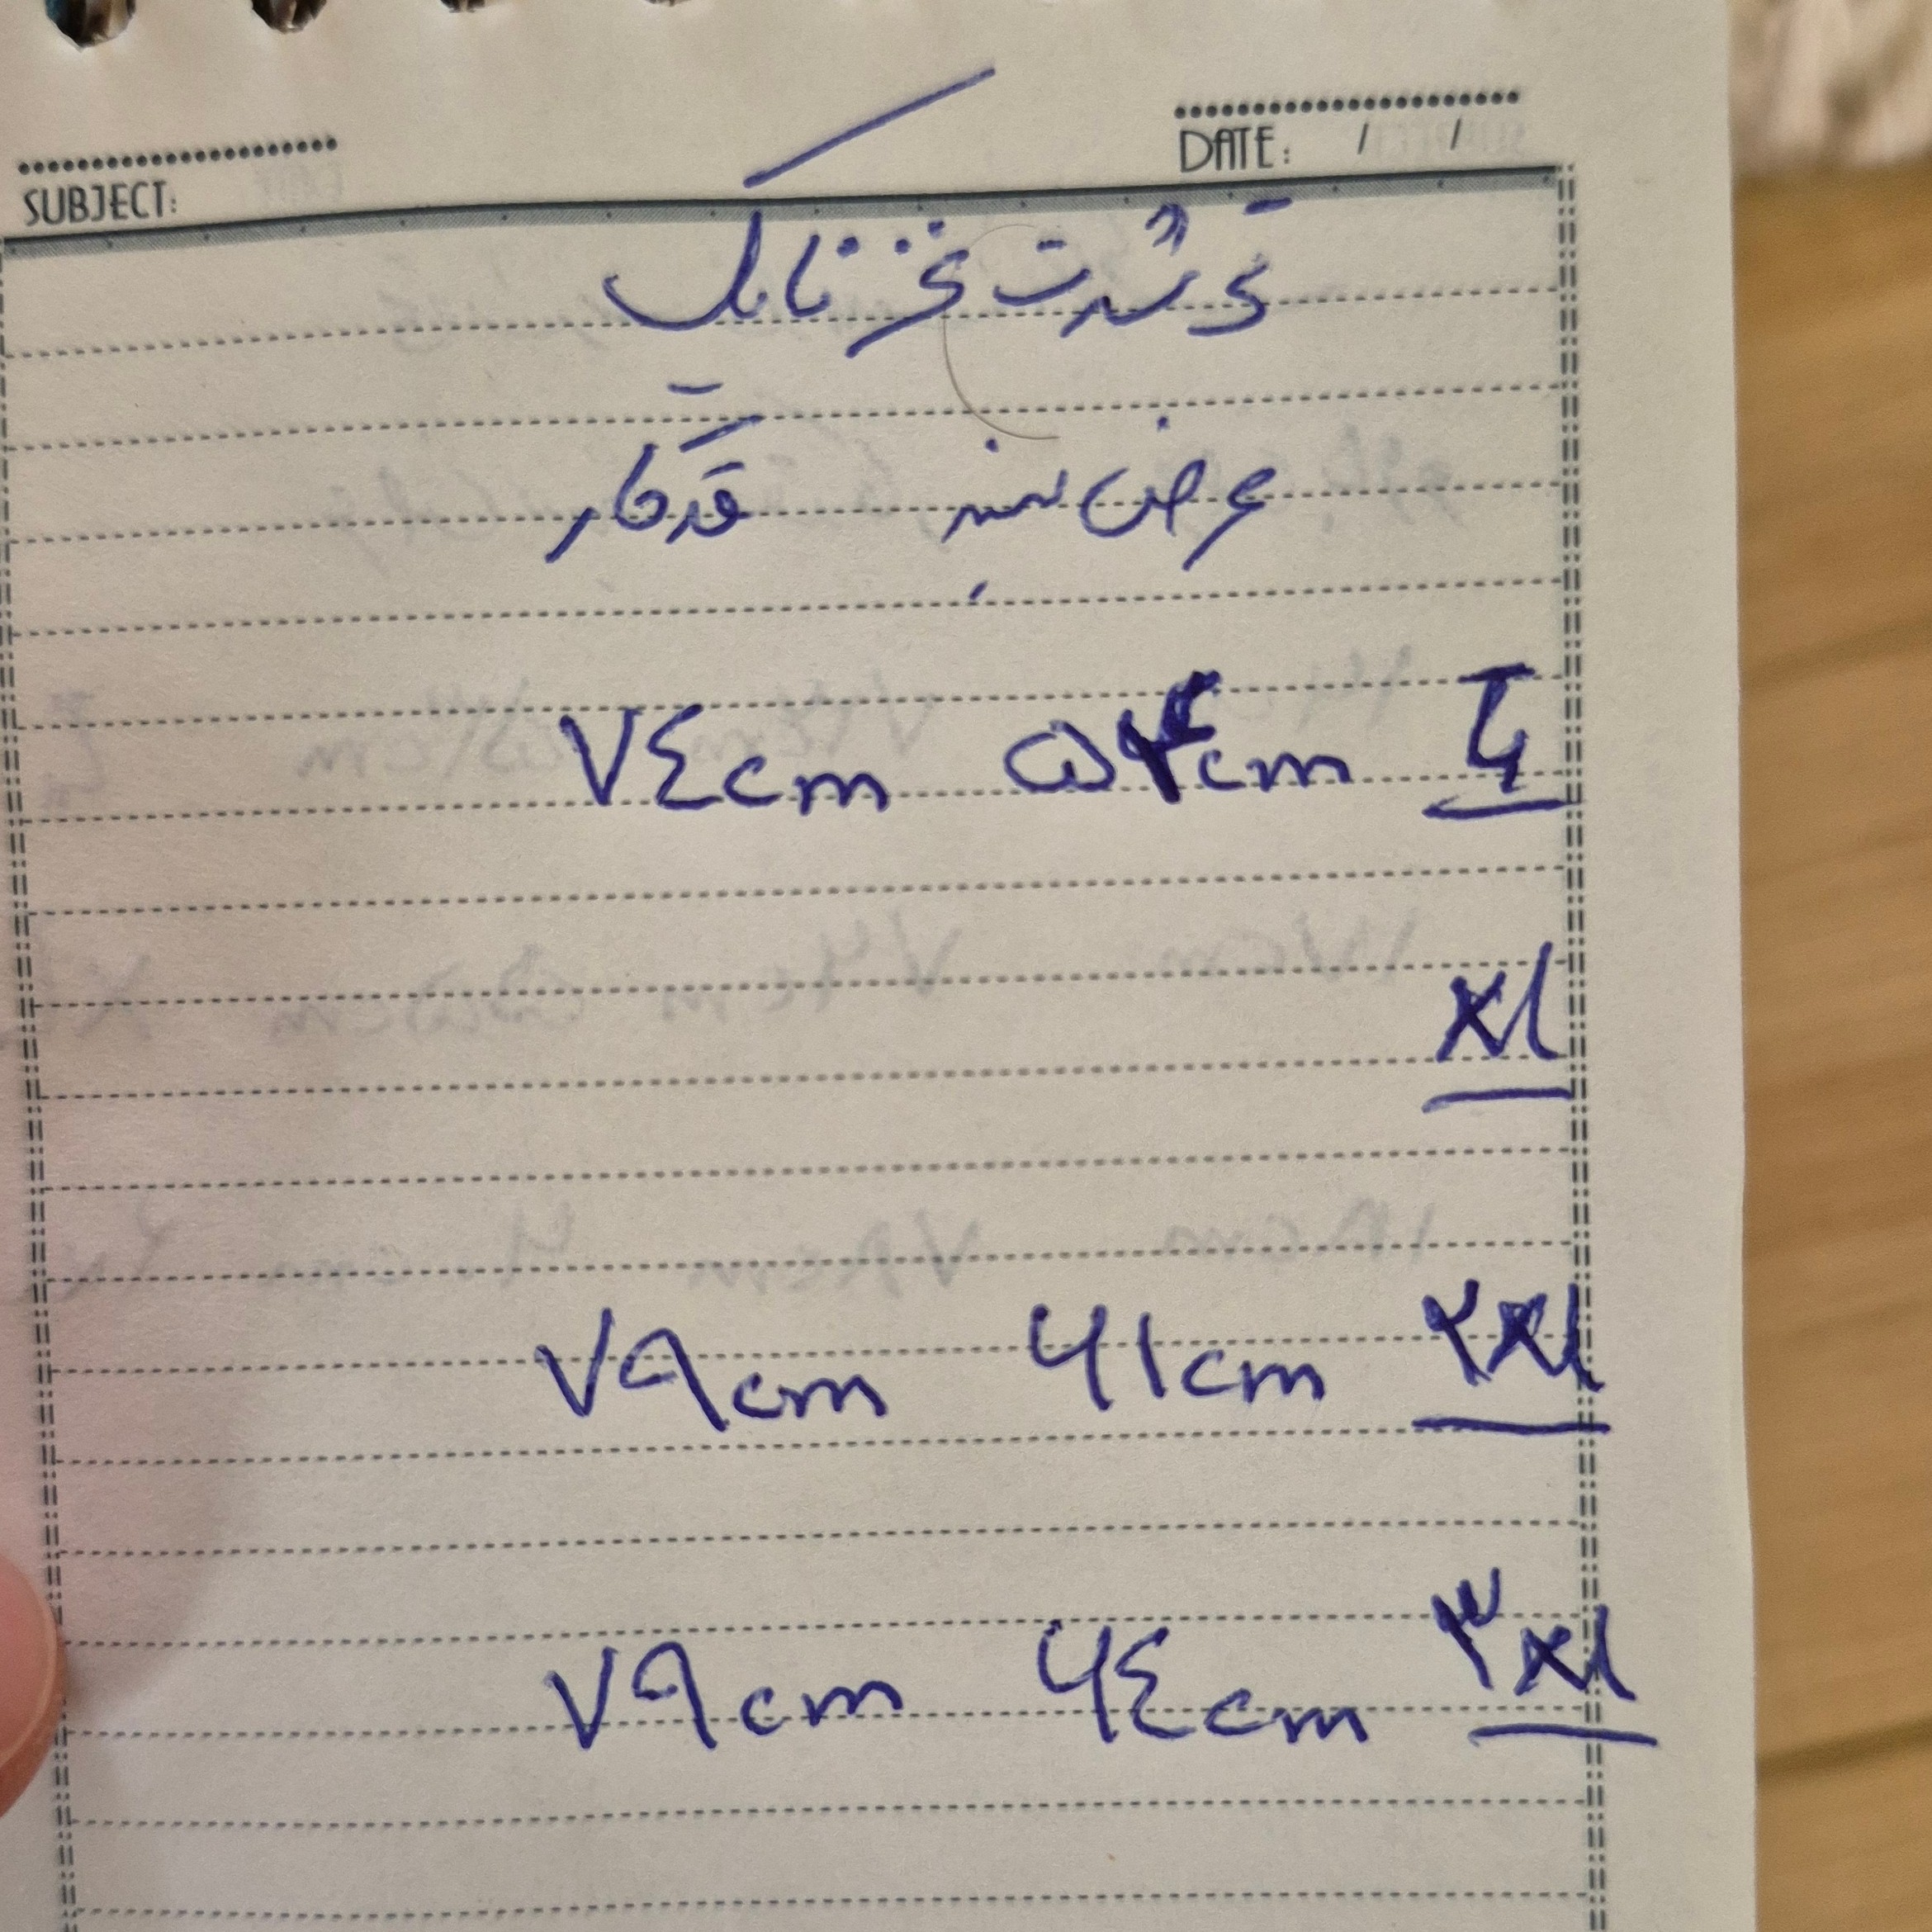 SUBJECT:
DATE: / /
تیشرت نخ نایک
عرض سینه قد کار
L ۵۴cm ۷٤cm
xl
۲xl ۶۱cm ۷۹cm
۳xl ۶٤cm ۷۹cm